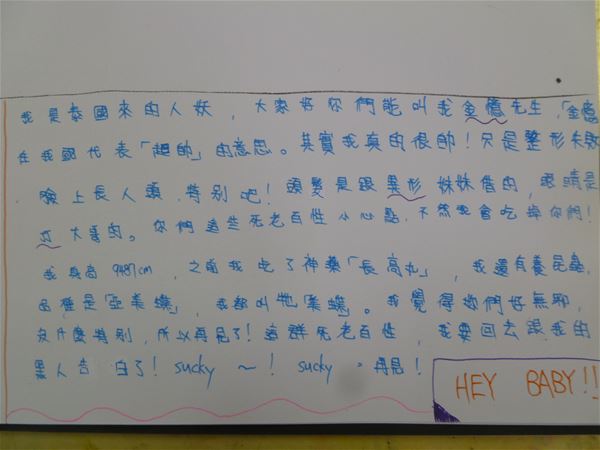 我是泰國來的人妖，大家好你們能叫我金億先生，「金億
在我國代表「超帥」的意思。其實我真的很帥！只是整形失敗
，臉上長人頭，特別吧！頭髮是跟異形妹妹借的，眼睛是
大哥的。你們這些死老百性小心點，不然我會吃掉你們！
我身高9487cm，之前我吃了神藥「長高丸」，我還有養昆蟲，
品種是「亞美蟻」，我都叫牠「美蟻」。我覺得你們好無聊，
沒什麼特別，所以再見了！這群死老百性，我要回去跟我的
黑人告白了！sucky～！sucky。再見！
HEY BABY!!